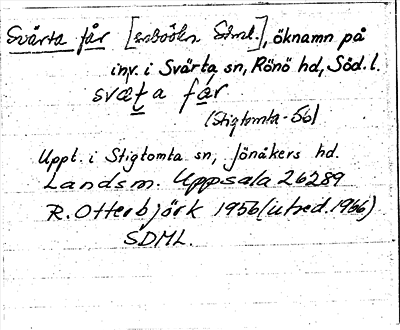 Svärta får [sockenbon Söml.], öknamn på
inv. i Svärta sn, Rönö hd, Söd. l.
sväťa får
(Stigtomta-56)
Uppt. i Stigtomta sn, Jönåkers hd.
Landsm. Uppsala 26289
R. Otterbjörk 1956 (utred. 1966)
SDML.